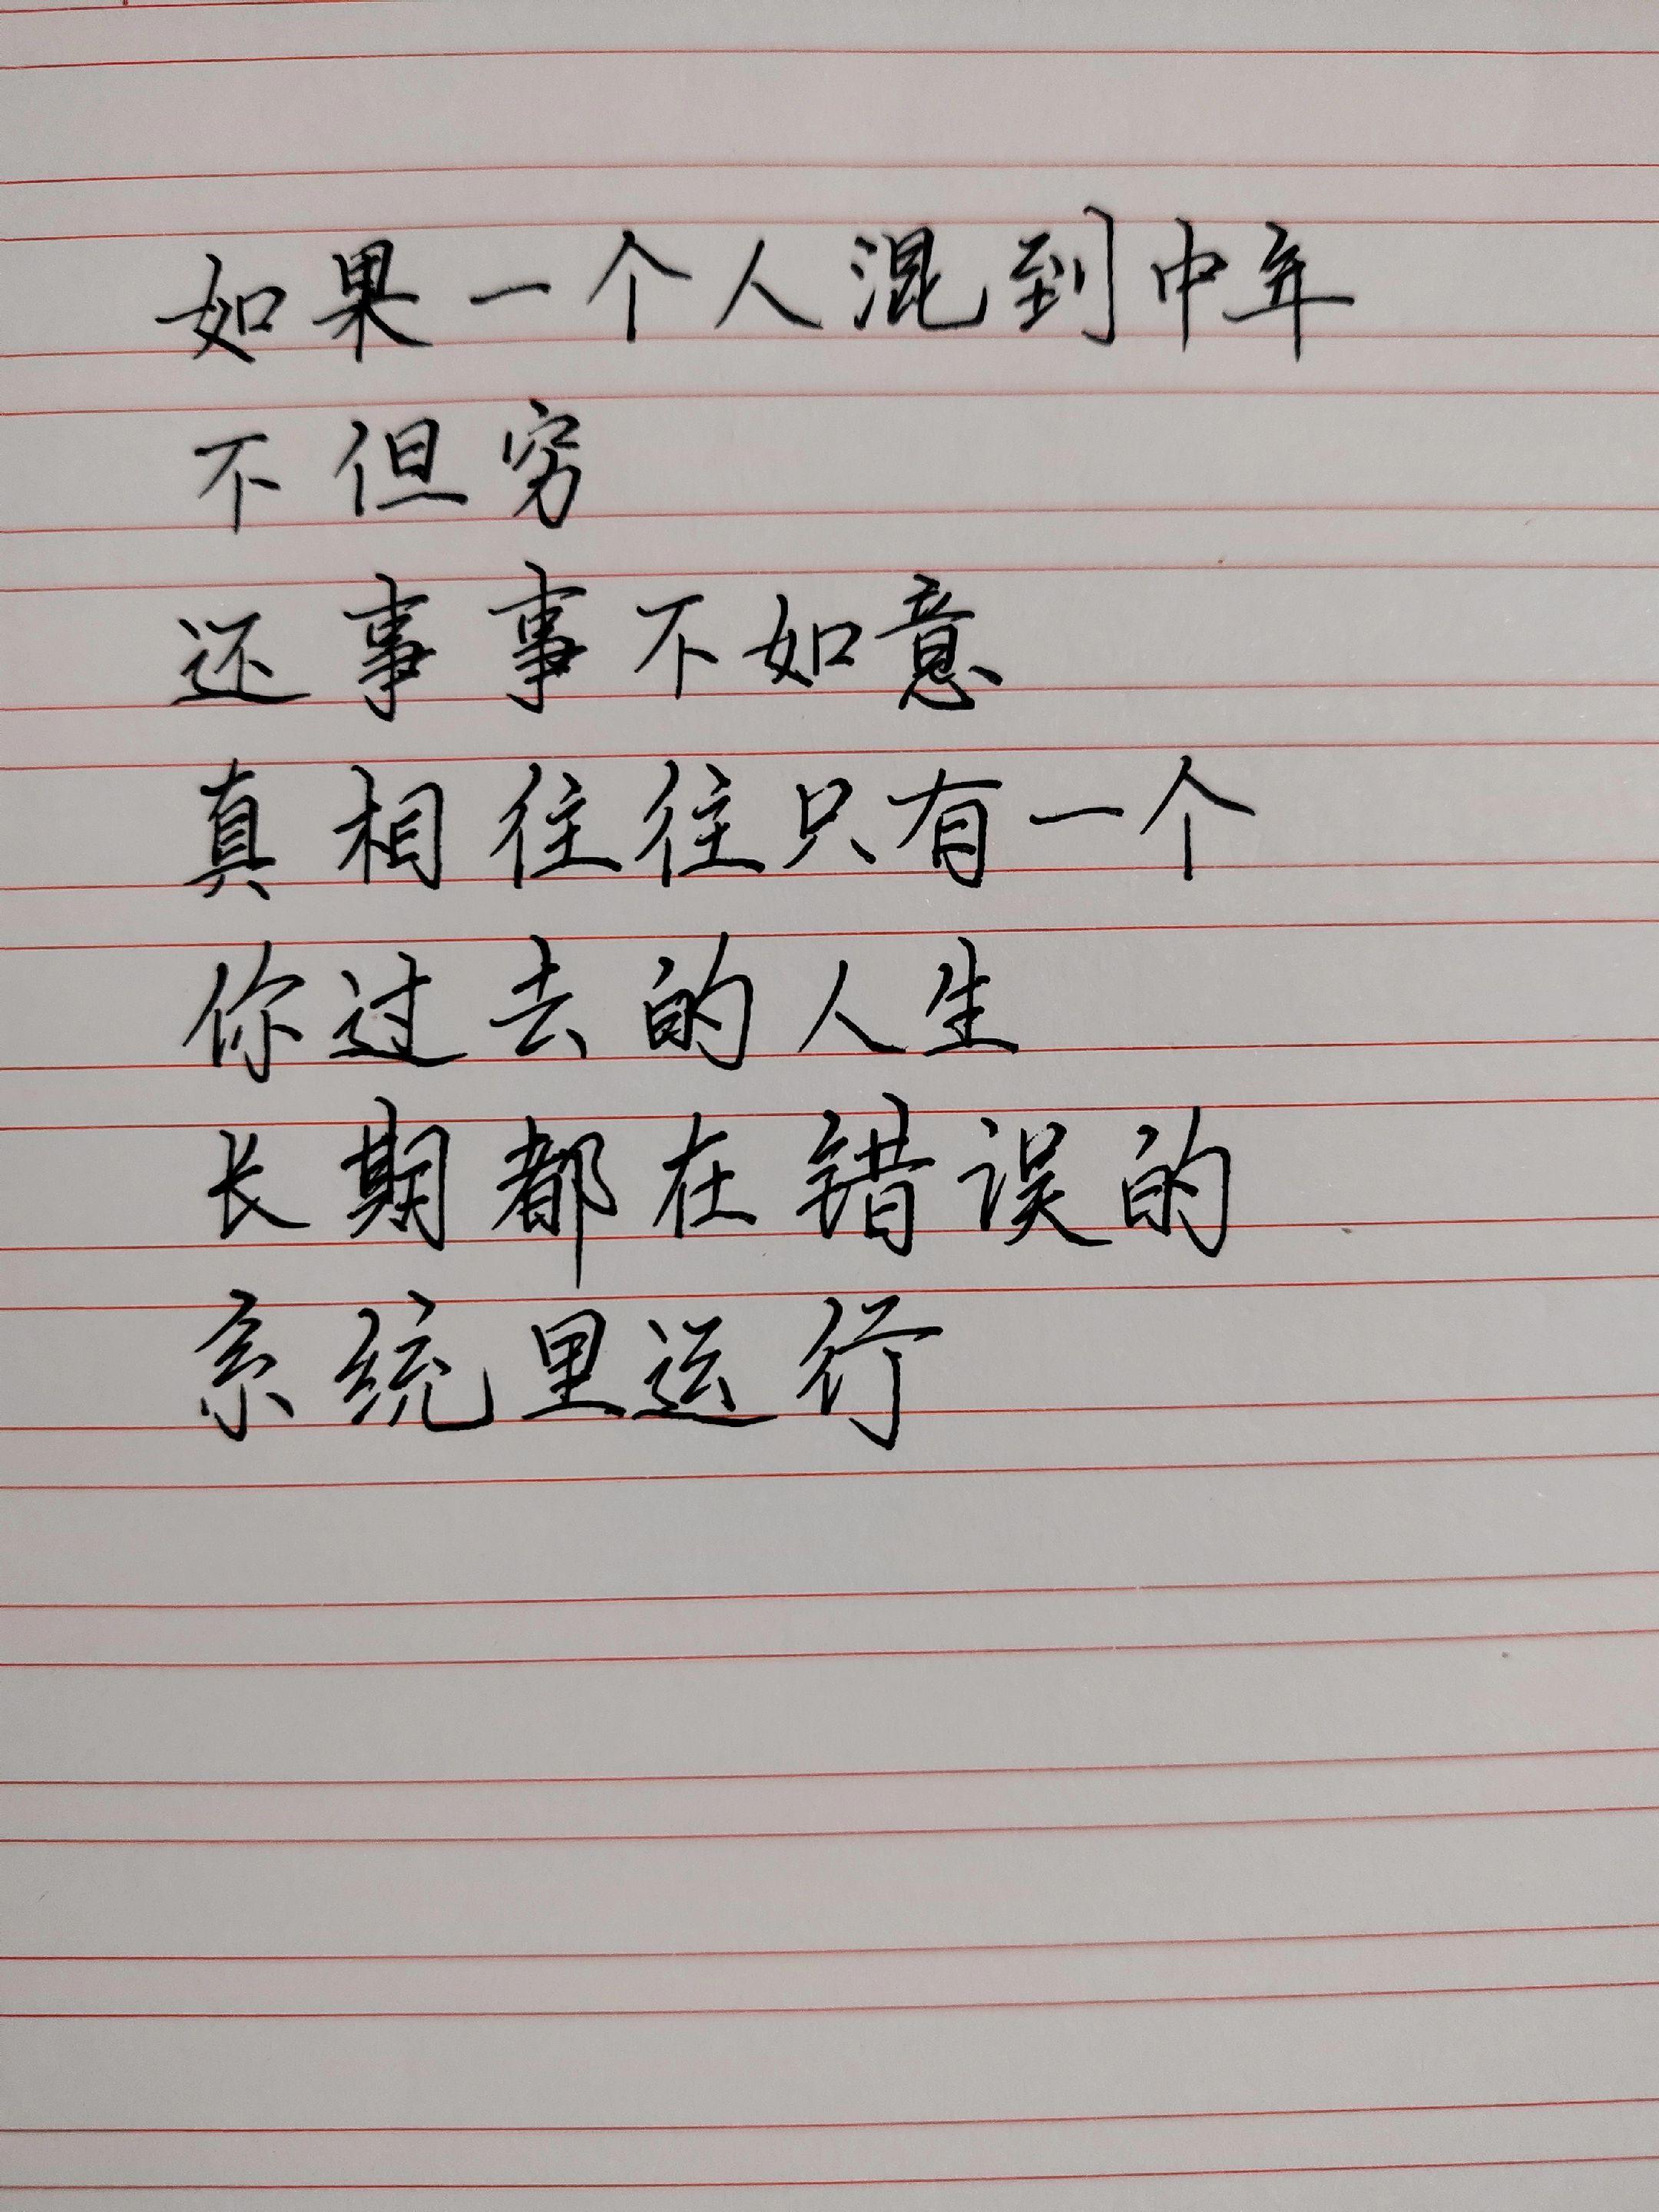 如果一个人混到中年
不但穷
还事事不如意
真相往往只有一个
你过去的人生
长期都在错误的
系统里运行